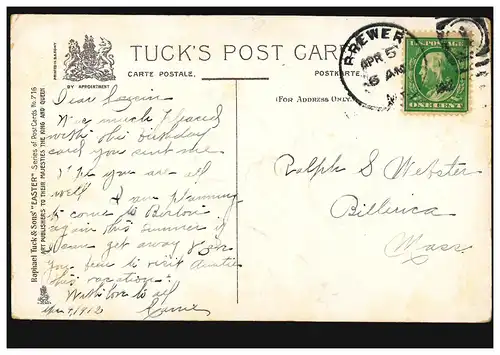 TUCK'S POST CARD
CARTE POSTALE.
POSTKARTE.
BY APPOINTMENT
(FOR ADDRESS ONLY.)
Raphael Tuck & Sons' "EASTER" Series of Post Cards No. 716
ART PUBLISHERS TO THEIR MAJESTIES THE KING AND QUEEN
BREWER
APR 5
5 AM
U.S. POSTAGE
ONE CENT
Dear Cousin
much pleased
with the birthday
card you sent me
you are all
well I am planning
to come to Boston
again this summer if
get away
you to visit Auntie
his vacation.
With love to all
Apr 4, 1912 Carrie
Ralph S Webster
Billerica
Mass